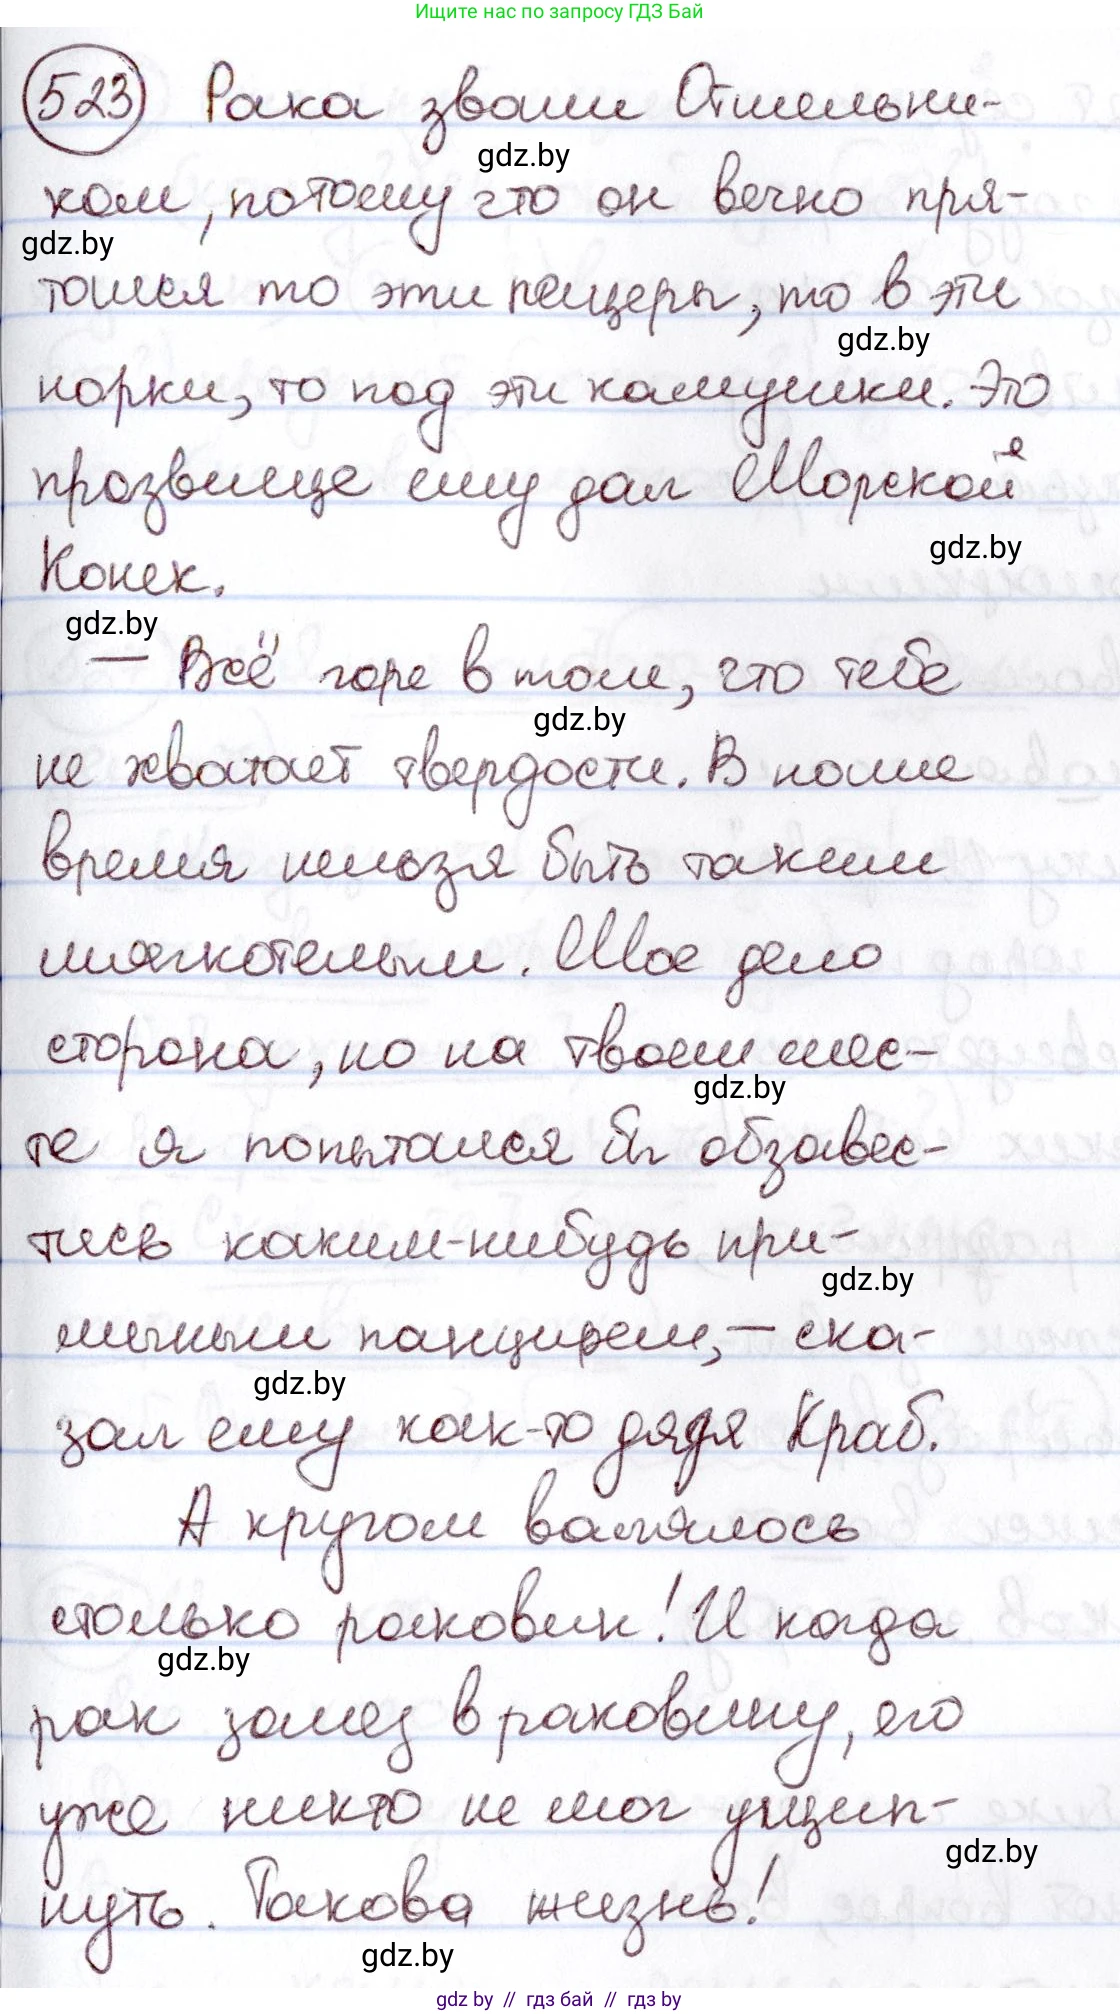 Ищите нас по запросу ГДЗ Бай
523 Рака звали Отшельни-
gdz.by
ком, потому что он вечно пря-
gdz.by
тался то эти пещеры, то в эти
gdz.by
норки, то под эти камушки. Это
прозвище ему дал Морской
Конек.
gdz.by
gdz.by
— Всё горе в том, что тебе
gdz.by
не хватает твердости. В наше
время нельзя быть таким
мягкотелым. Мое дело
сторона, но на твоем мес-
gdz.by
те я попытался бы обзавес-
тись каким-нибудь при-
gdz.by
личным панцирем, — ска-
gdz.by
зал ему как-то дядя Краб.
А кругом валялось
столько раковин! И когда
gdz.by
рак залез в раковину, его
уже никто не мог ущип-
gdz.by
нуть. Такова жизнь!
gdz.by
gdz by // гдз бай // гдз by